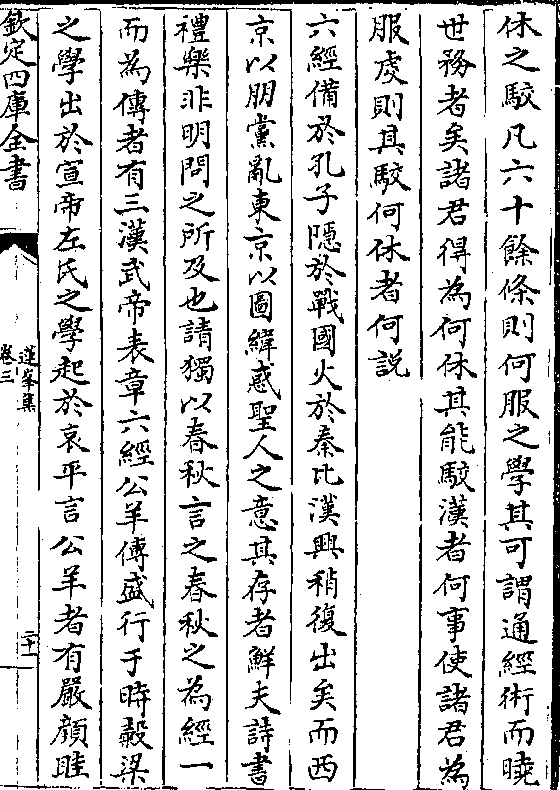 休之駁凡六十餘條則何服之學其可謂通經術而曉
世務者矣諸君得為何休其能駁漢者何事使諸君為
服䖍則其駁何休者何説
六經備於孔子隠於戰國火於秦比漢興稍復出矣而西
京以朋黨亂東京以圖緯惑聖人之意其存者鮮夫詩書
禮樂非明問之所及也請獨以春秋言之春秋之為經一
而為傳者有三漢武帝表章六經公羊傳盛行于時穀梁
之學出於宣帝左氏之學起於哀平言公羊者有嚴顔眭
欽定四庫全書
蓮峯集
卷三
二十一